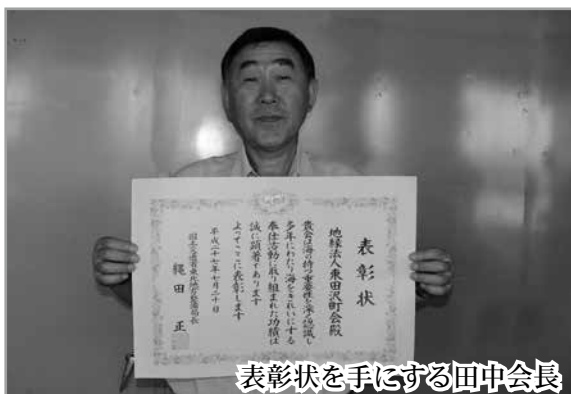 表彰状
地縁法人東田沢町会殿
貴会は海の持つ重要性を深く認識し
多年にわたり海をきれいにする
奉仕活動に取り組まれた功績は
誠に顕著であります
よってここに表彰します
平成二十七年七月二十日
国土交通省東北地方整備局長
縄田 正
表彰状を手にする田中会長